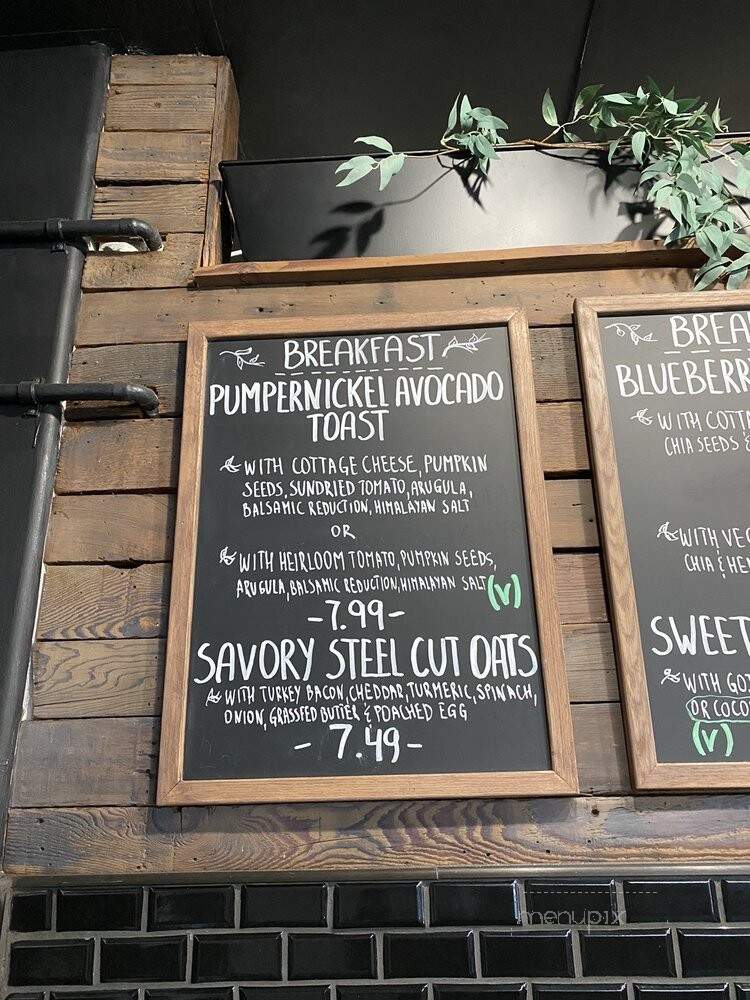 BREAKFAST
PUMPERNICKEL AVOCADO
TOAST
WITH COTTAGE CHEESE, PUMPKIN
SEEDS, SUNDRIED TOMATO, ARUGULA,
BALSAMIC REDUCTION, HIMALAYAN SALT
OR
WITH HEIRLOOM TOMATO, PUMPKIN SEEDS,
ARUGULA, BALSAMIC REDUCTION, HIMALAYAN SALT (V)
-7.99-
SAVORY STEEL CUT OATS
WITH TURKEY BACON, CHEDDAR, TURMERIC, SPINACH,
ONION, GRASSFED BUTTER & POACHED EGG
- 7.49 -
BREA
BLUEBERR
WITH COTTA
CHIA SEEDS &
WITH VEG
CHIA & HE
SWEET
WITH GO
OR COCO
(V)
menupix